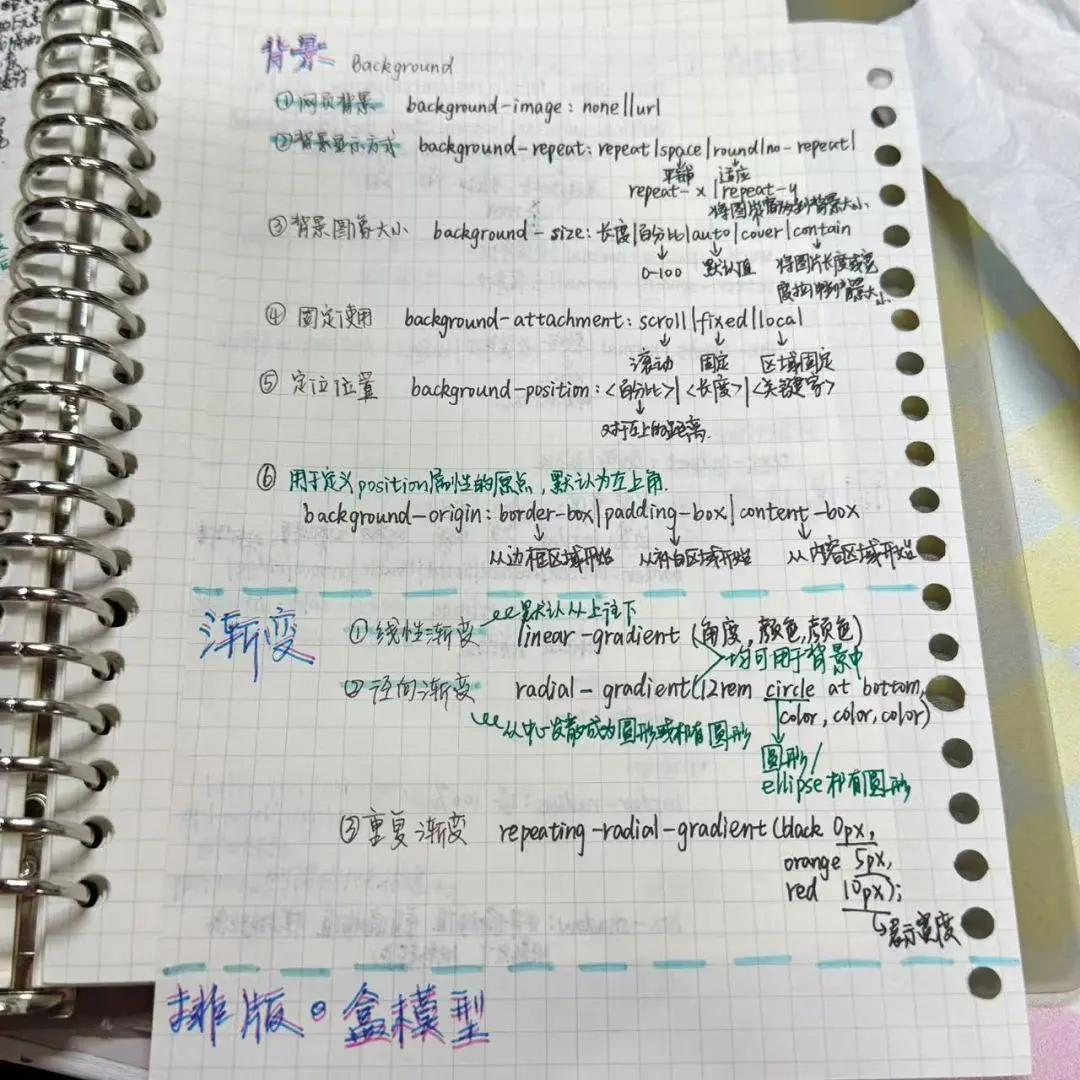 背景 Background
①网页背景 background-image: none||url
②背景显示方式 background-repeat: repeat|space|round|no-repeat|
平铺 适应
repeat-x|repeat-y
③背景图像大小 background-size: 长度|百分比|auto|cover|contain
0-100 默认值 将图片长度或宽
④ 固定使用 background-attachment: scroll|fixed|local
滚动 固定 区域固定
⑤ 定位位置 background-position: <百分比>|<长度>|<关键字>
对于左上的距离.
⑥ 用于定义position属性的原点, 默认为左上角.
background-origin: border-box|padding-box|content-box
从边框区域开始 从补白区域开始 从内容区域开始
渐变
默认从上往下
①线性渐变 linear-gradient (角度, 颜色,颜色)
均可用于背景中
②径向渐变 radial-gradient(12rem circle at bottom,
color, color, color)
从中心发散成为圆形或椭圆形
圆形/
ellipse 椭圆形
③重复渐变 repeating-radial-gradient(black 0px,
orange 5px,
red 10px);
表示宽度
排版。盒模型